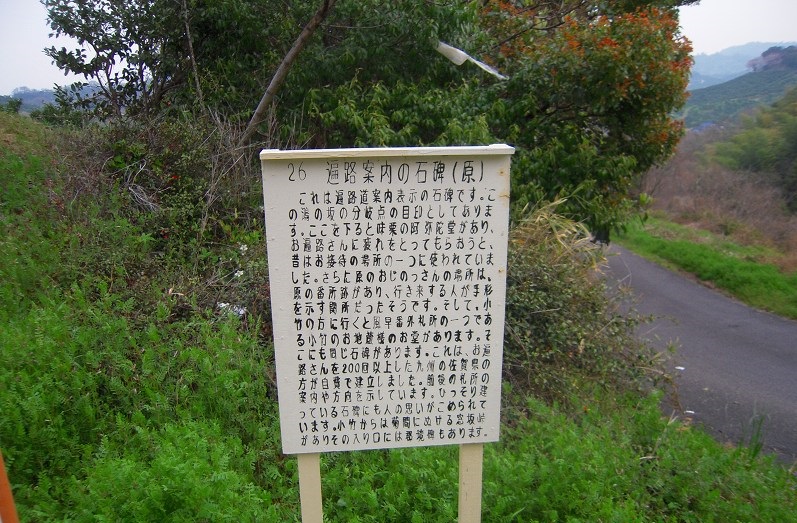 26 遍路案内の石碑(原)
これは遍路道案内表示の石碑です。こ
の鴻の坂の分岐点の目印としてありま
す。ここを下ると味栗の阿弥陀堂があり、
お遍路さんに疲れをとってもらおうと、
昔はお接待の場所の一つに使われていま
した。さらに原のおじのっさんの場所は、
原の番所跡があり、行き来する人が手形
を示す関所だったそうです。そして、小
竹の方に行くと風早番外札所の一つであ
る小竹のお地蔵様のお堂があります。そ
こにも同じ石碑があります。これは、お遍
路さんを200回以上した九州の佐賀県の
方が自費で建立しました。前後の札所の
案内や方向を示しています。ひっそり建
っている石碑にも人の思いがこめられて
います。小竹からは菊間にぬける窓坂峠
がありその入り口には郡境標もあります。